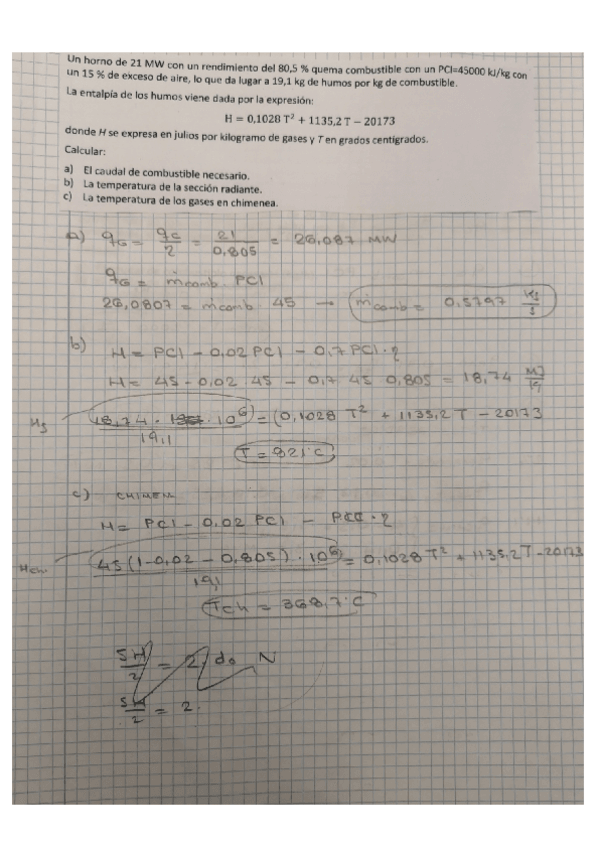 Un horno de 21 MW con un rendimiento del 80,5 % quema combustible con un PCI=45000 kJ/kg con
un 15 % de exceso de aire, lo que da lugar a 19,1 kg de humos por kg de combustible.
La entalpía de los humos viene dada por la expresión:
H = 0,1028 T² + 1135,2 T − 20173
donde H se expresa en julios por kilogramo de gases y T en grados centígrados.
Calcular:
a) El caudal de combustible necesario.
b) La temperatura de la sección radiante.
c) La temperatura de los gases en chimenea.
a) qG = qc/2 = 21/0,805 = 26,087 MW
qG = ṁcomb. PCI
26,0807 = ṁcomb 45 → ṁcomb = 0,5797 Kg/s
b) H = PCI − 0,02 PCI − 0,7 PCI · 2
H = 45 − 0,02 · 45 − 0,7 45 0,805 = 18,74 MJ/Kg
Hg 18,74 · 10⁶/19,1 = (0,1028 T² + 1135,2 T − 20173
T = 821°C
c) CHIMEN
H = PCI − 0,02 PCI − PCI · 2
Hch. 45 (1−0,02 − 0,805) · 10⁶/19, = 0,1028 T² + 1135,2T − 20173
Tch = 368,7°C
SH/2 = 2/ do N
SH/2 = 2.